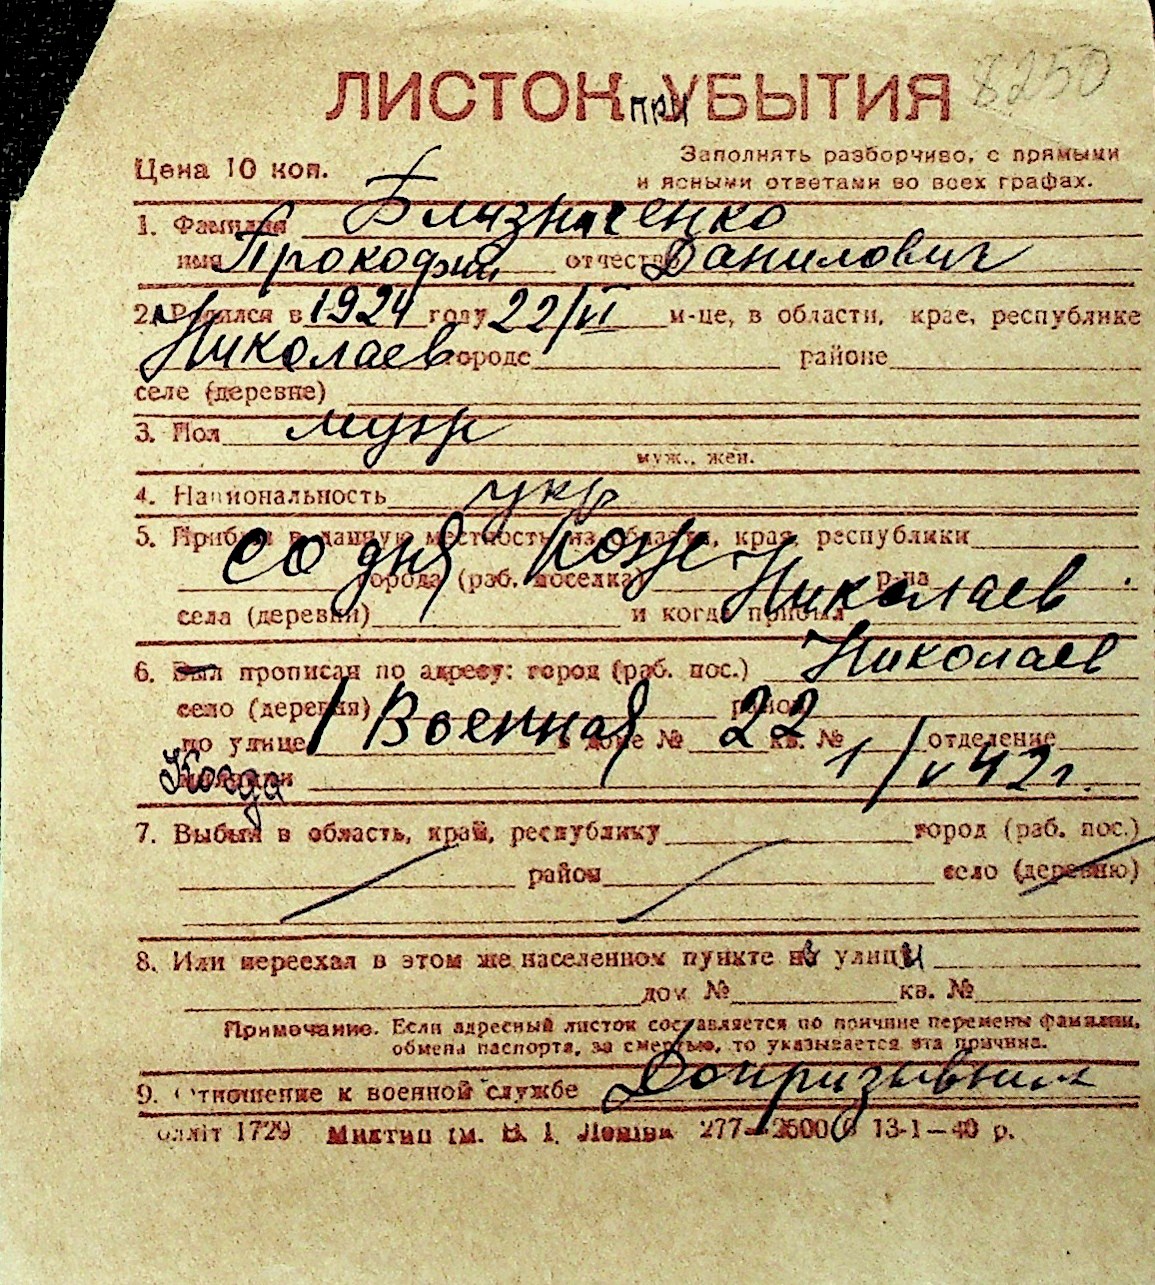 8250
ЛИСТОК при УБЫТИЯ
Цена 10 коп.
Заполнять разборчиво, с прямыми
и ясными ответами во всех графах.
1. Фамилия Близниченко
имя Прокофий отчество Данилович
2. Родился в 1924 году 22/VI м-це, в области, крае, республике
Николаев городе районе
селе (деревне)
3. Пол муж
муж., жен.
4. Национальность укр
5. Прибыл в данную местность из области, края, республики
со дня рожд Николаев
города (раб. поселка) р-на
села (деревни) и когда прибыл
6. Был прописан по адресу: город (раб. пос.) Николаев
село (деревня) район
по улице 1 Военная в доме № 22 кв. № отделение
Когда милиции 1/V 42г.
7. Выбыл в область, край, республику город (раб. пос.)
район село (деревню)
8. Или переехал в этом же населенном пункте на улицу
дом № кв. №
Примечание. Если адресный листок составляется по причине перемены фамилии,
обмена паспорта, за смертью, то указывается эта причина.
9. Отношение к военной службе Допризывник
облліт 1729 Миктип ім. В. І. Леніна 277—25000 13-1—40 р.